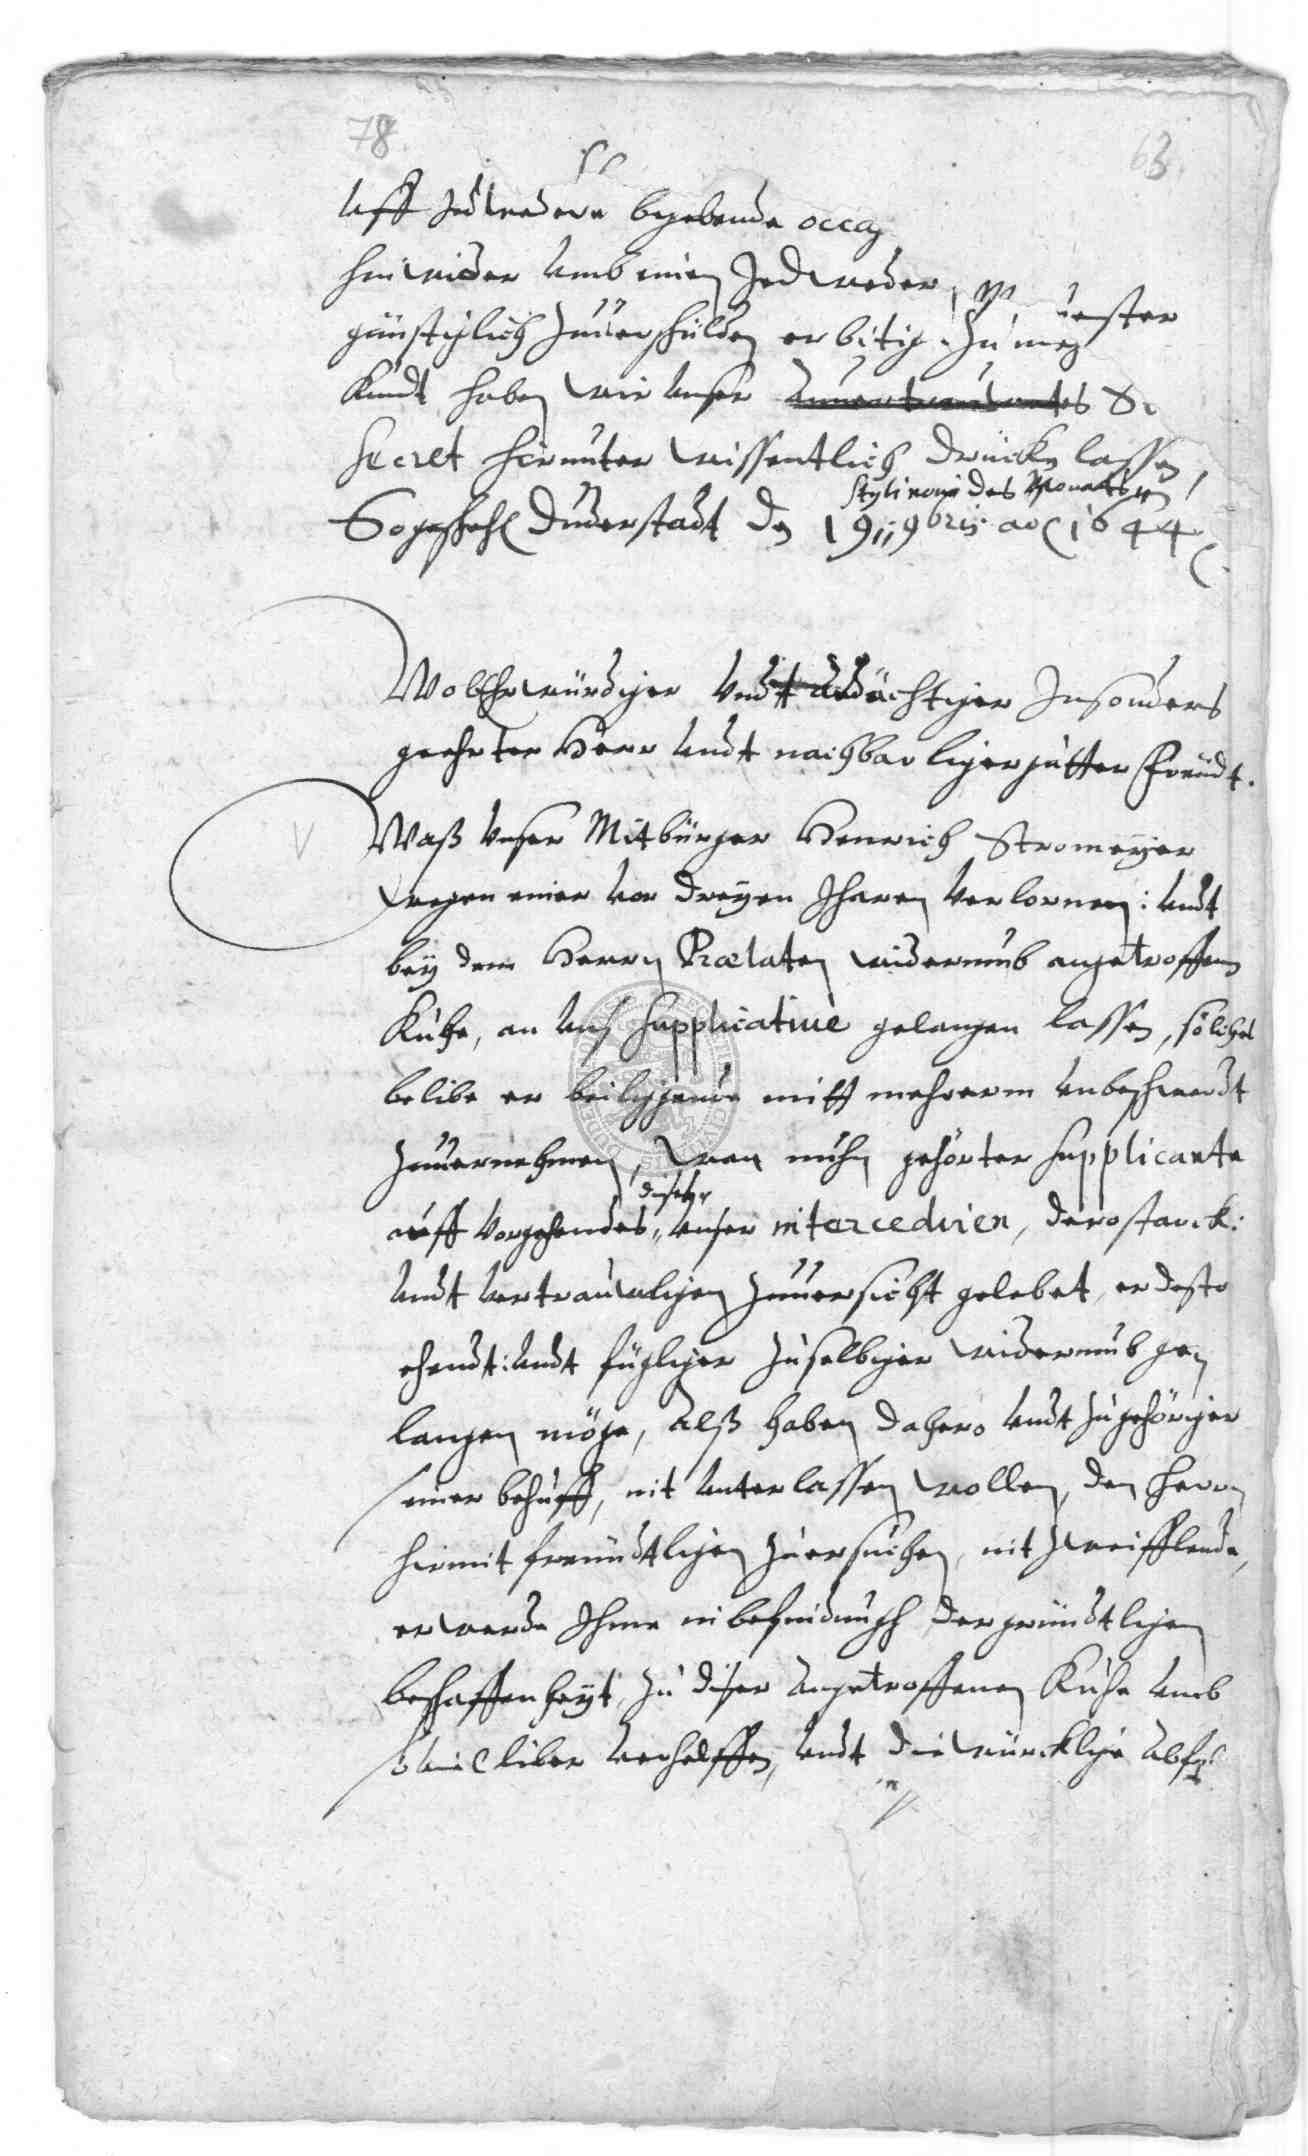 78.
63.
uff Jedtwedere begebende occas
hinwider umb einen Jedtweder,
günstiglich zuverschülden erbitig. Zu
kundt haben wir unser
Secret hirunter wissentlich drücken lassen,
styli novi des Monats
So geschehen Duderstadt den 19 9bris ao 1644
Wollehrwürdiger undt andächtiger Insonders
geehrter Herr undt nachbarliger gutter Freündt.
V
Waß unser Mitbürger Henrich Stromeyer
wegen einer vor dreyen Jharen verlornen: undt
bey dem Herrn Prælaten widerumb angetroffenen
Kuhe, an uns supplicativè gelangen lassen, solches
belibe er beiliggende mitt mehrerm unbeschwerdt
zuvernehmen, wan nuhn gehörter supplicante
diese
auff vorgehendes, unser intercediren, der starck:
undt vertrauwligen zuversicht gelebet, er desto
ehendt: undt fügliger zu selbiger widerumb ge
langen möge, Alß haben dahero undt zu gehöriger
seiner behuff, nit unterlassen wollen, den Herrn
hirmit freündtligen zuersuchen, nit zweifflende,
er werde Ihme in befindnuß der gründtligen
beschaffenheyt, zu diser angetroffenen Kuhe umb
so viel liber verhelffen, undt die würcklige